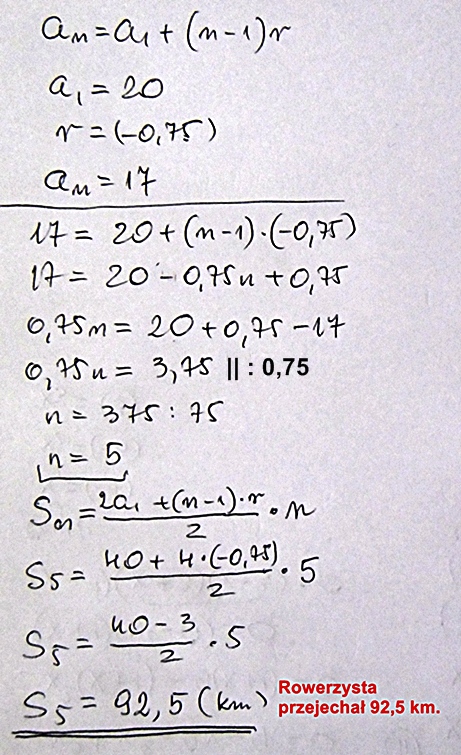 aₙ = a₁ + (n-1)r
a₁ = 20
r = (-0,75)
aₙ = 17
17 = 20 + (n-1)·(-0,75)
17 = 20 - 0,75n + 0,75
0,75n = 20 + 0,75 - 17
0,75n = 3,75 || : 0,75
n = 375 : 75
n = 5
Sₙ = (2a₁ + (n-1)·r)/2 · n
S₅ = (40 + 4·(-0,75))/2 · 5
S₅ = (40 - 3)/2 · 5
S₅ = 92,5 (km)
Rowerzysta
przejechał 92,5 km.